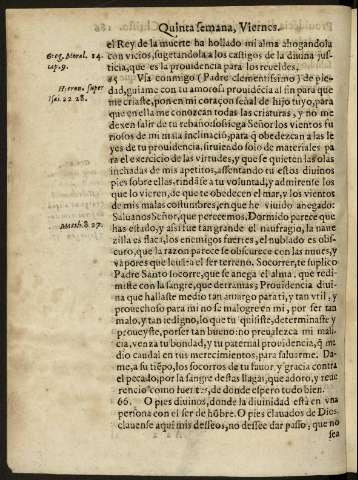 Quinta semana, Viernes.
el Rey de la muerte ha hollado mi alma ahogandola
con vicios, sugetandola a los castigos de la diuina jus-
ticia, que es la prouidencia para los reueldes.
Greg. Moral. 14.
cap. 9.
65 Vsa conmigo (Padre clementissimo) de pie-
dad, guiame con tu amorosa prouidēcia al fin para que
me criaste, pon en mi coraçon señal de hijo tuyo, para
que en ella me conozcan todas las cristuras, y no me
dexen salir de tu rebaño: sossiega Señor los vientos fu
riosos de mi mala inclinaciō, para q̄ obedezcan a las le
yes de tu prouidencia, siruiendo solo de materiales pa
ra el exercicio de las virtudes, y que se quieten las olas
inchadas de mis apetitos, assentando tu estos diuinos
pies sobre ellas, rindāse a tu voluntad, y admirente los
que lo vieren, de que te obedecen el mar, y los vientos
de mis malas costumbres, en que he viuido anegado:
Saluanos Señor, que perecemos. Dormido parece que
has estado, y assi fue tan grande el naufragio, la naue
zilla es flaca, los enemigos fuertes, el nublado es obs-
curo, que la razon parece se obscurece con las nuues, y
vapores que leuāta el ser terreno. Socorrer, te suplico
Padre Santo socorre, que se anega el alma, que redi-
miste con la sangre, que derramas; Prouidencia diui
na que hallaste medio tan amargo para ti, y tan vtil, y
prouechoso para mi no se malogre en mi, por ser tan
malo, y tan indigno, lo que tu quisiste, determinaste y
proueyste, por ser tan bueno: no preualezca mi mali
cia, venza tu bondad, y tu paternal prouidencia, q̄ me
dio caudal en tus merecimientos, para saluarme. Da-
me, a su tiēpo, los socorros de tu fauor y gracia contra
el pecado, por la sangre destas llagas, que adoro, y reue
rencio como fuentes, de donde espero todo bien.
Hieron. super
Isai. 22. 28.
Matth. 8. 27.
66. O pies diuinos, donde la diuinidad está en vna
persona con el ser de hōbre. O pies clauados de Dios,
clauense aqui mis desseos, no dessee dar passo, que no
sea